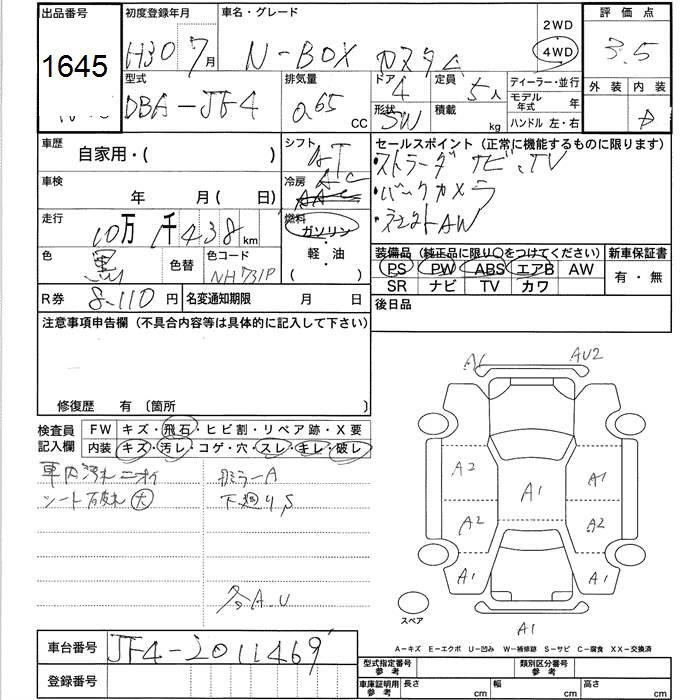 出品番号 初度登録年月 車名・グレード 2WD 評価点
1645 H30 7月 N-BOX カスタム 4WD 3.5
型式 排気量 ドア 4 定員 5人 ディーラー・並行 外装 内装
DBA-JF4 0.65 CC 形状 SW 積載 kg モデル年式 年 D
ハンドル 左・右
車歴 自家用・( ) シフト AT セールスポイント(正常に機能するものに限ります)
・ストラーダナビ、TV
車検 年 月( 日) 冷房 AC AAC ・バックカメラ
走行 10万 1千438km 燃料 ガソリン・ ・社外AW
色 黒 色替 色コード NH731P 軽・油 ( )
装備品(純正品に限り○をつけてください) 新車保証書
PS PW ABS エアB AW 有・無
SR ナビ TV カワ
R券 8,110円 名変通知期限 月 日 後日品
注意事項申告欄(不具合内容等は具体的に記入して下さい)
修復歴 有 〔箇所 〕
検査員記入欄 FW キズ・飛石・ヒビ割・リペア跡・X要
内装 キズ・汚レ・コゲ・穴・スレ・キレ・破レ
車内汚れニオイ ミラーA
シート破れ 大 下廻りS
各A.U
A1 AU2
A2 A1
A1
A2 A2
A1 A1
スペア A1
A-キズ E-エクボ U-凹み W-補修跡 S-サビ C-腐食 XX-交換済
車台番号 JF4-2011469
登録番号
型式指定番号 参考 類別区分番号 参考
車庫証明用 参考 長さ cm 幅 cm 高さ cm